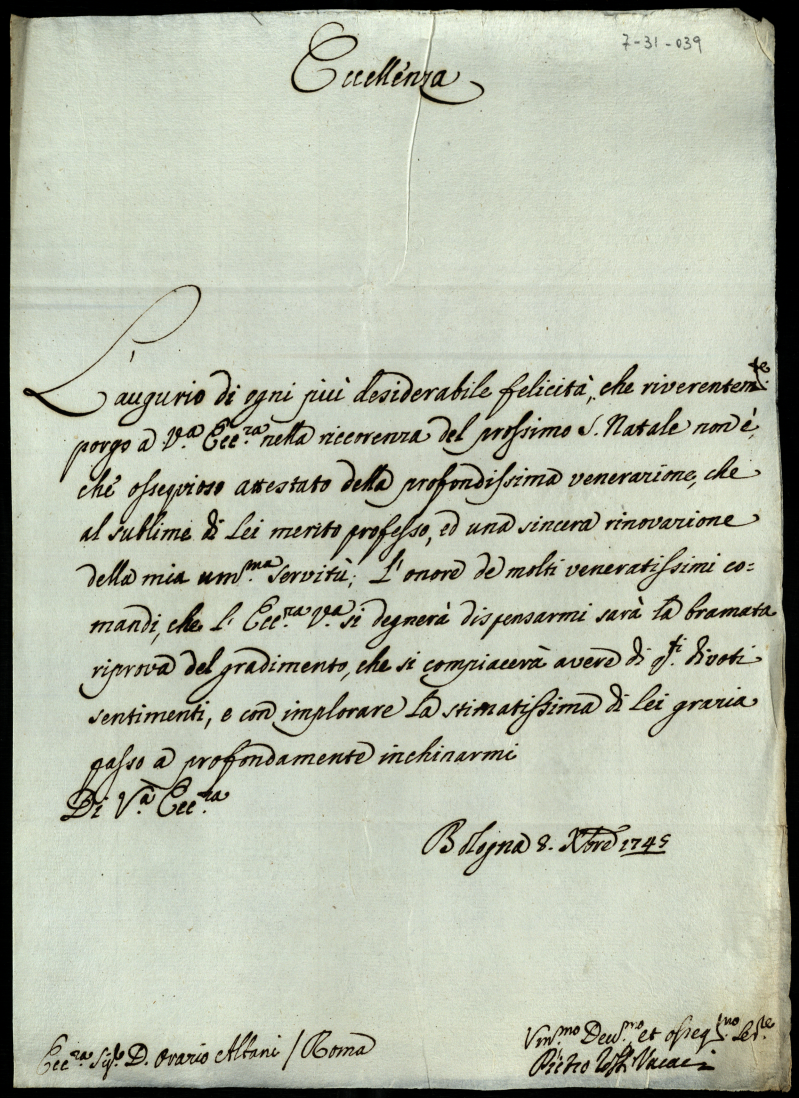 7-31-039
Eccellenza
L'augurio di ogni più desiderabile felicità, che riverentem.te
porgo a V.a Ecc.ra nella ricorenza del prossimo S. Natale non è,
che ossequioso attestato della profondissima venerazione, che
al sublime di Lei merito professo, ed una sincera rinovazione
della mia um.ma servitù; L'onore de molti veneratissimi co=
mandi, che l'Ecc.ra V.a si degnerà dispensarmi sarà la bramata
riprova del gradimento, che si compiacerà avere di q.ti divoti
sentimenti, e con implorare la stimatissima di Lei grazia
passo a profondamente inchinarmi
Di V.a Ecc.ra
Bologna 8. Xbre 1745
Um.mo Dev.mo et osseq.mo Ser.re
Ecc.ra Sig.e D. Orazio Albani / Roma
Pietro